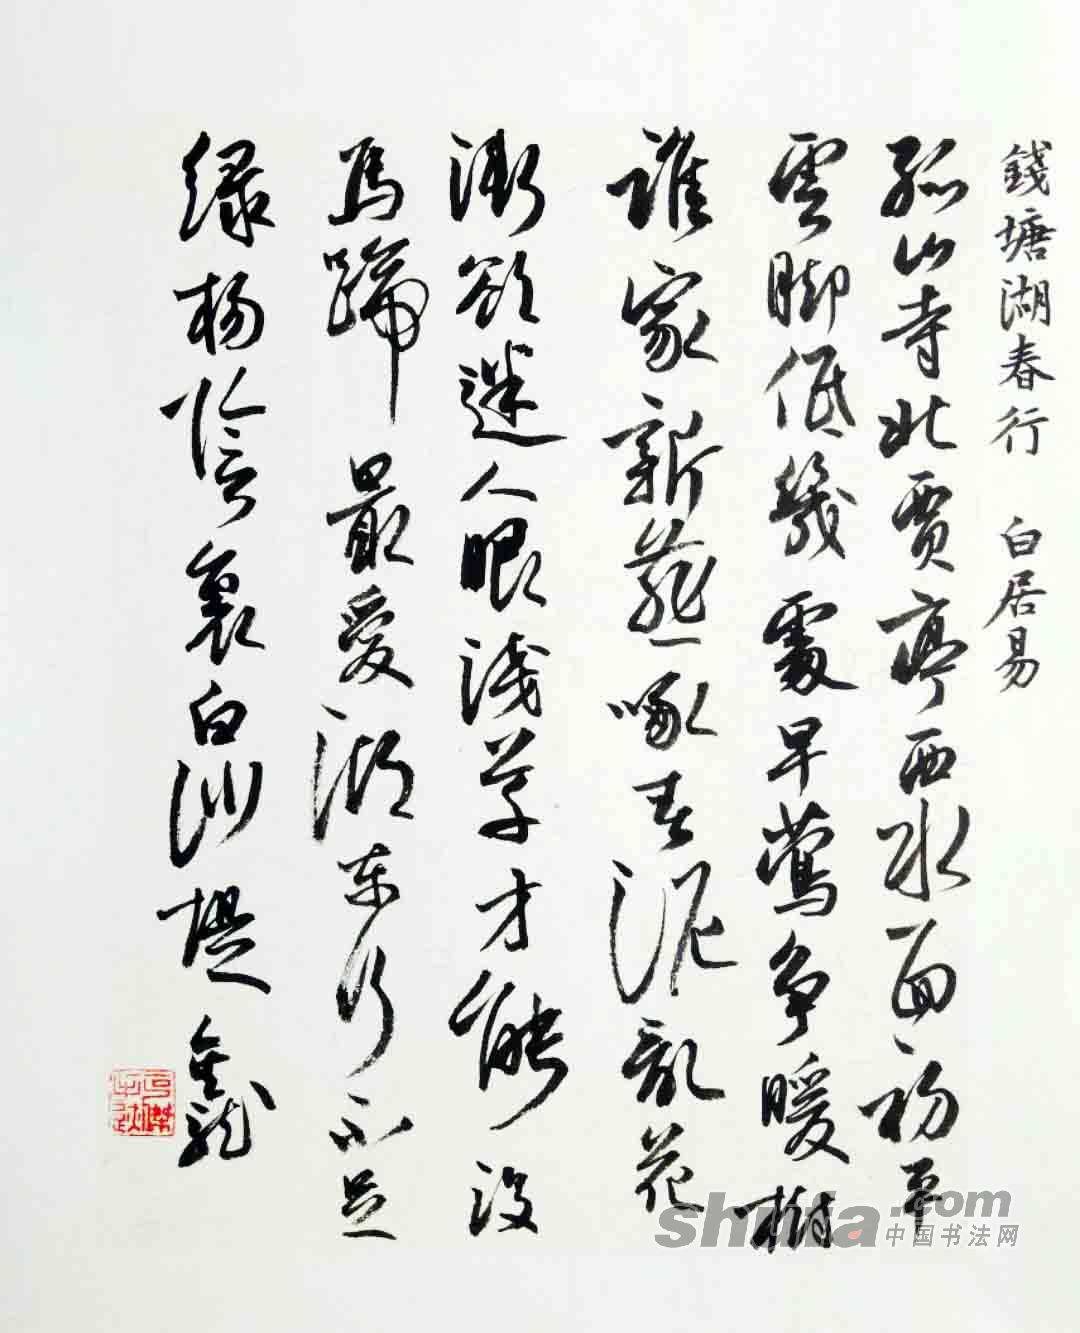 錢塘湖春行 白居易
孤山寺北賈亭西水面初平
雲脚低幾處早鶯争暖樹
誰家新燕啄春泥亂花
漸欲迷人眼淺草才能没
馬蹄最愛湖東行不足
緑楊陰裏白沙堤
shufa.com
中国书法网